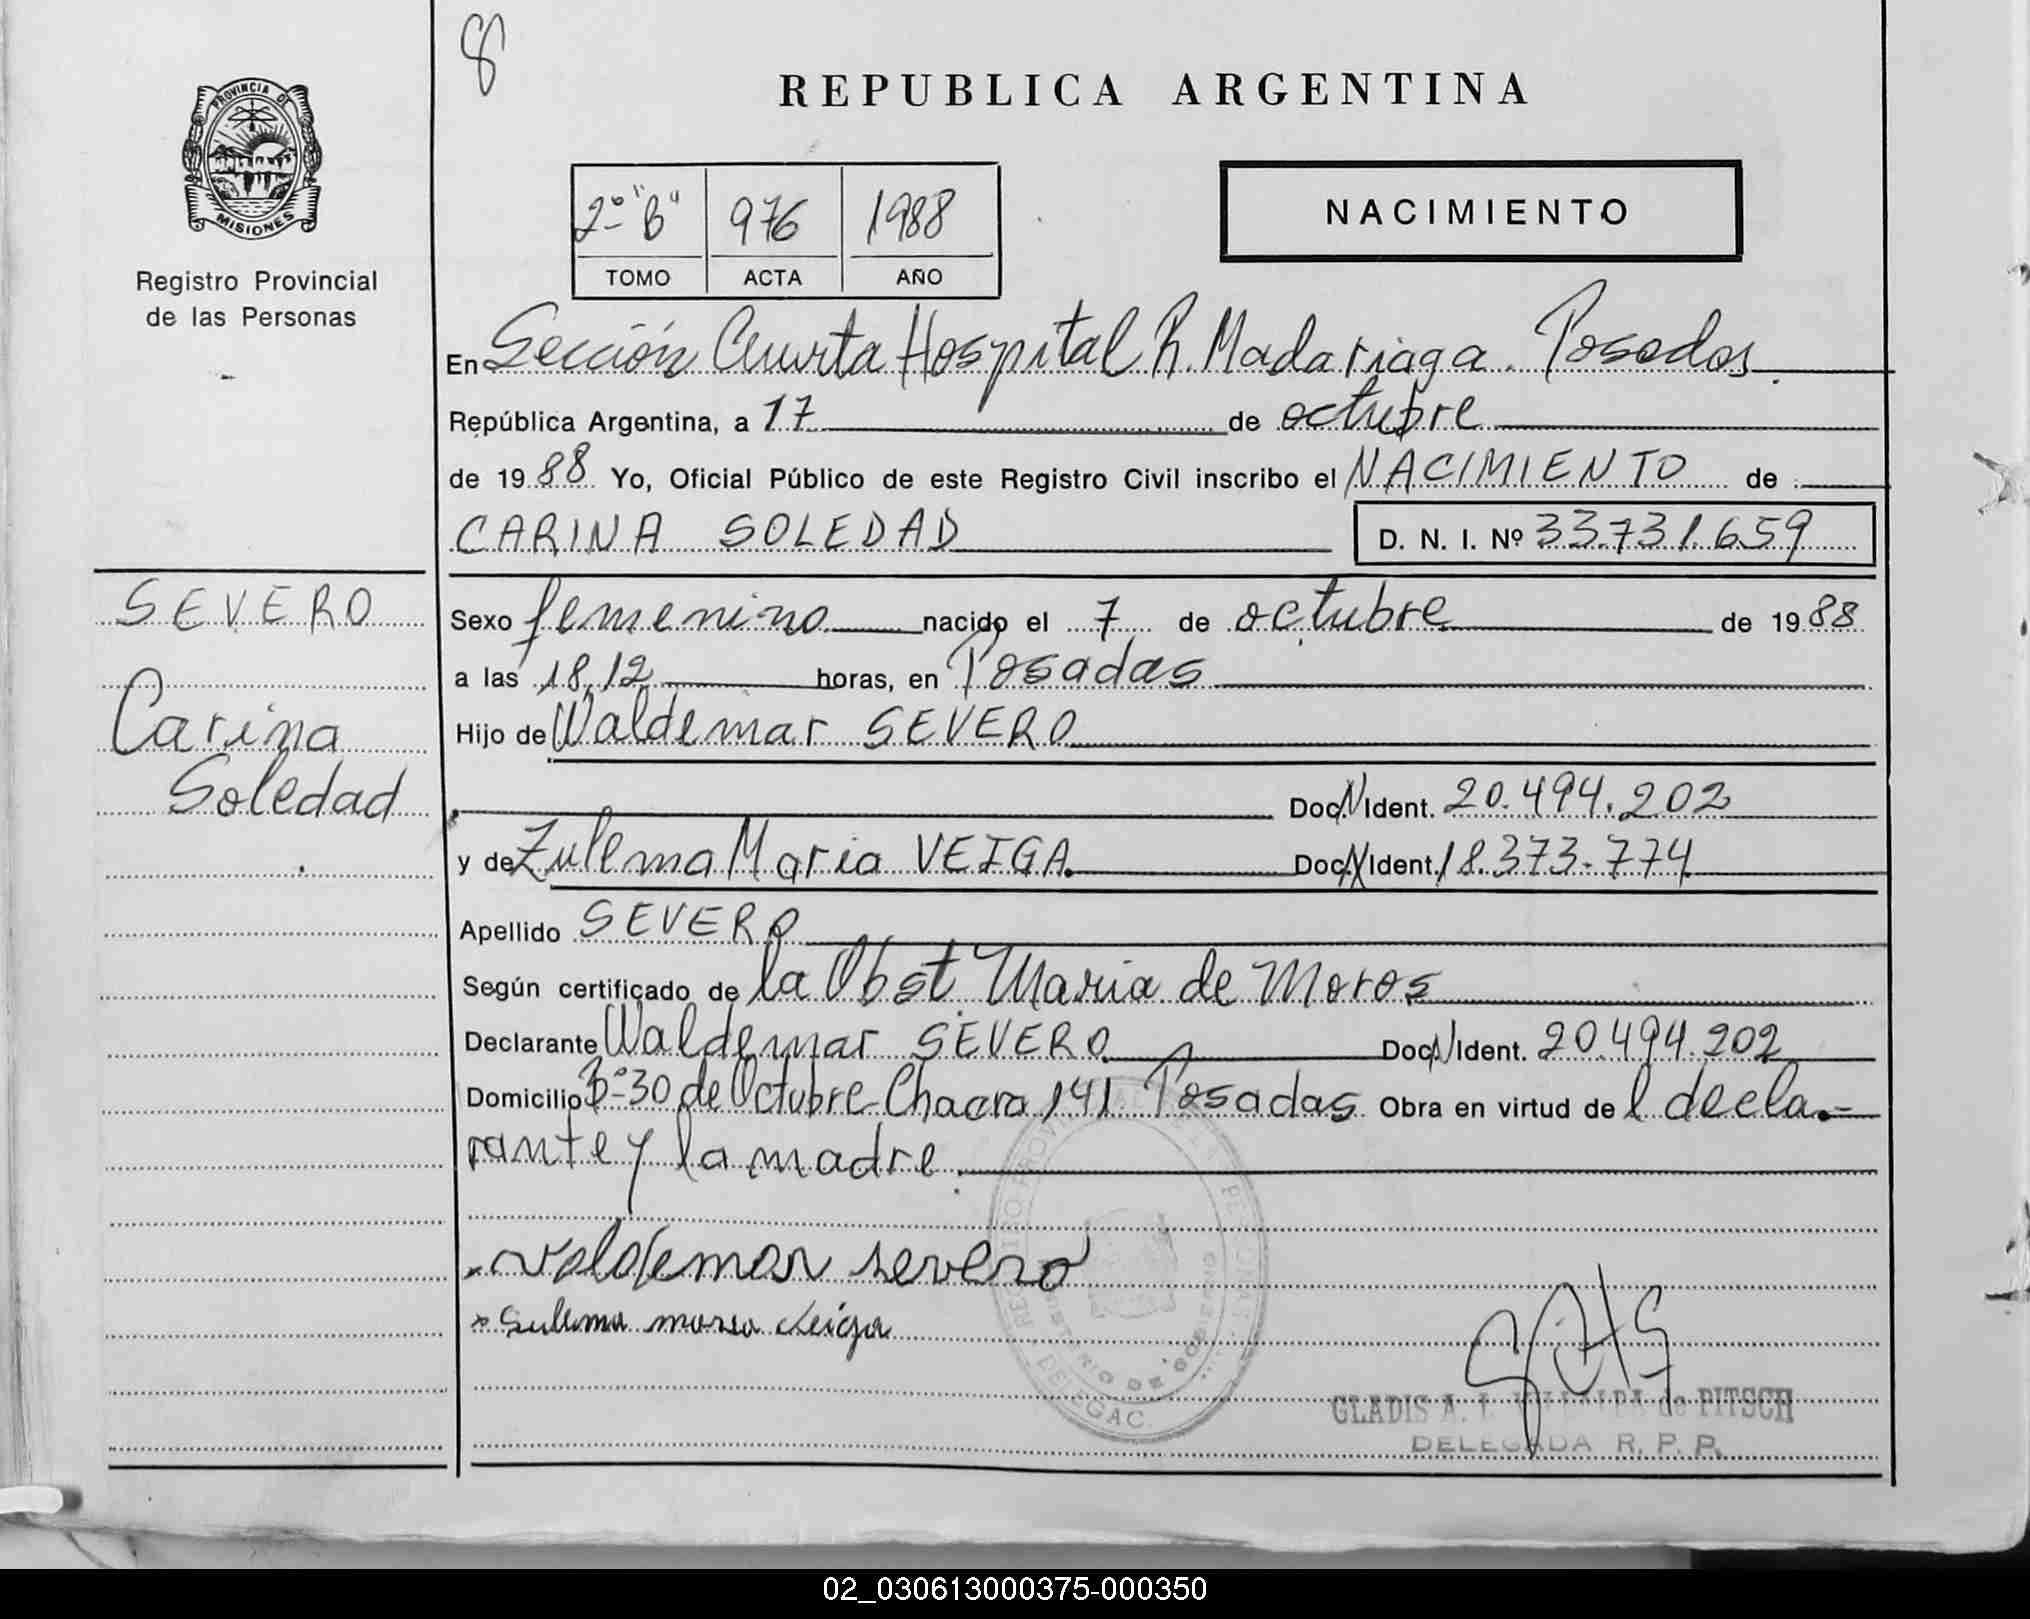 8
PROVINCIA DE
MISIONES
Registro Provincial
de las Personas
REPUBLICA ARGENTINA
2º "B" 976 1988
TOMO ACTA AÑO
NACIMIENTO
En Sección Cuarta Hospital R. Madariaga. Posadas
República Argentina, a 17 de octubre
de 1988 Yo, Oficial Público de este Registro Civil inscribo el NACIMIENTO de
CARINA SOLEDAD D. N. I. Nº 33.731.659
SEVERO
Carina
Soledad
Sexo femenino nacido el 7 de octubre de 1988
a las 18,12 horas, en Posadas
Hijo de Waldemar SEVERO
Doc. N Ident. 20.494.202
y de Zulema Maria VEIGA Doc. N Ident. 18.373.774
Apellido SEVERO
Según certificado de la Obst. Maria de Moros
Declarante Waldemar SEVERO Doc. N Ident. 20.494.202
Domicilio Bº-30 de Octubre-Chacra 141 Posadas Obra en virtud de l decla-
rante y la madre.
Valdemar severo
Sulema maria Veiga
GLADIS A. L. VILLALBA de PITSCH
DELEGADA R. P. P.
02_030613000375-000350